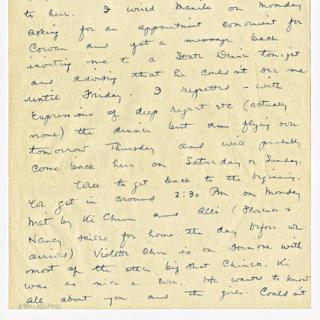 to her. I wired Manila on Monday
asking for an appointment convenient for
Cowan and got a message back
inviting me to a State Dinner tonight
and advising that he could not see me
until Friday. I regretted - with
expressions of deep regret etc (actually
none) the dinner but am flying over
tomorrow Thursday and will probably
come back here on Saturday or Sunday.
Well to get back to the beginning.
We got in around 2:30 PM on Monday
met by Ki Chun and Alli (Florence &
Nancy sailed for home the day before we
arrived) Violette Chun is on Formosa with
most of the other big shot Chinese. Ki
was as nice as ever. He wanted to know
all about you and the girls. Couldn't